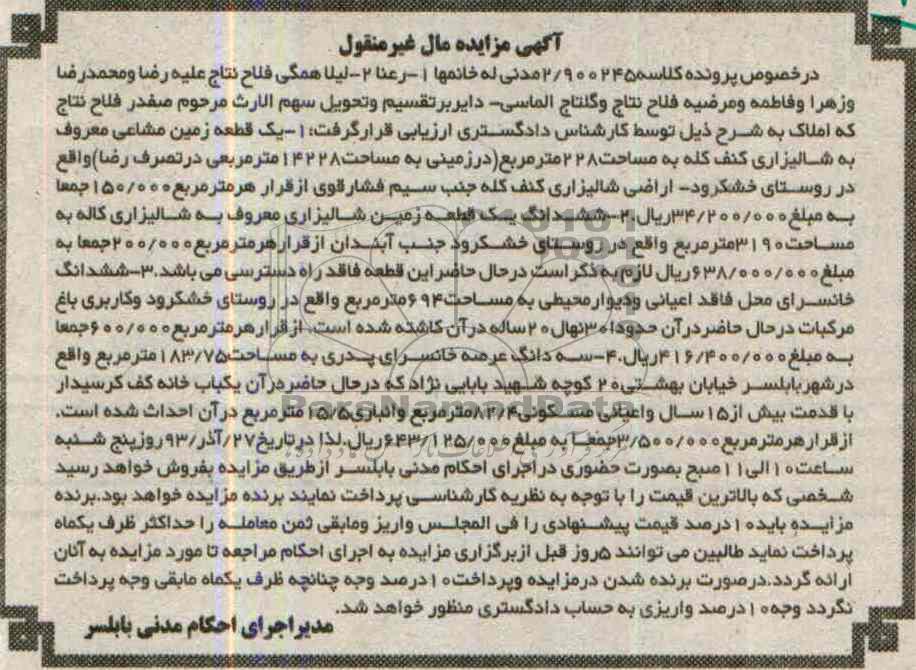 آگهی مزایده مال غیرمنقول
درخصوص پرونده کلاسه ۲/۹۰۰۲۴۵مدنی له خانمها ۱-رعنا ۲-لیلا همگی فلاح نتاج علیه رضا ومحمدرضا
وزهرا وفاطمه ومرضیه فلاح نتاج وگلنتاج الماسی- دایربرتقسیم وتحویل سهم الارث مرحوم صفدر فلاح نتاج
که املاک به شرح ذیل توسط کارشناس دادگستری ارزیابی قرارگرفت:۱-یک قطعه زمین مشاعی معروف
به شالیزاری کنف کله به مساحت۲۲۸مترمربع(درزمینی به مساحت۱۴۲۲۸مترمربعی درتصرف رضا)واقع
در روستای خشکرود- اراضی شالیزاری کنف کله جنب سیم فشارقوی ازقرار هرمترمربع۱۵۰/۰۰۰جمعا
به مبلغ۳۴/۲۰۰/۰۰۰ریال.۲-ششدانگ یک قطعه زمین شالیزاری معروف به شالیزاری کاله به
مساحت۳۱۹۰مترمربع واقع در روستای خشکرود جنب آبندان ازقرارهرمترمربع۲۰۰/۰۰۰جمعا به
مبلغ۶۳۸/۰۰۰/۰۰۰ریال لازم به ذکر است درحال حاضراین قطعه فاقد راه دسترسی می باشد.۳-ششدانگ
خانسرای محل فاقد اعیانی ودیوارمحیطی به مساحت۶۹۴مترمربع واقع در روستای خشکرود وکاربری باغ
مرکبات درحال حاضردرآن حدودا۳۰نهال۲۰ساله درآن کاشته شده است. ازقرارهرمترمربع۶۰۰/۰۰۰جمعا
به مبلغ۴۱۶/۴۰۰/۰۰۰ریال.۴-سه دانگ عرصه خانسرای پدری به مساحت۱۸۳/۷۵مترمربع واقع
درشهربابلسر خیابان بهشتی۲۰ کوچه شهید بابایی نژاد که درحال حاضردرآن یکباب خانه کف کرسیدار
با قدمت بیش از۱۵سال واعیانی مسکونی۸۲/۴مترمربع وانباری۱۵/۵مترمربع درآن احداث شده است.
ازقرارهرمترمربع۳/۵۰۰/۰۰۰جمعا به مبلغ۶۴۳/۱۲۵/۰۰۰ریال.لذا درتاریخ۲۷/آذر/۹۳روزپنج شنبه
ساعت۱۰الی۱۱صبح بصورت حضوری دراجرای احکام مدنی بابلسر ازطریق مزایده بفروش خواهد رسید
شخصی که بالاترین قیمت را با توجه به نظریه کارشناسی پرداخت نمایند برنده مزایده خواهد بود.برنده
مزایده باید۱۰درصد قیمت پیشنهادی را فی المجلس واریز ومابقی ثمن معامله را حداکثر ظرف یکماه
پرداخت نماید طالبین می توانند ۵روز قبل ازبرگزاری مزایده به اجرای احکام مراجعه تا مورد مزایده به آنان
ارائه گردد.درصورت برنده شدن درمزایده وپرداخت۱۰درصد وجه چنانچه ظرف یکماه مابقی وجه پرداخت
نگردد وجه۱۰درصد واریزی به حساب دادگستری منظور خواهد شد.
مدیراجرای احکام مدنی بابلسر
ParsNamadData